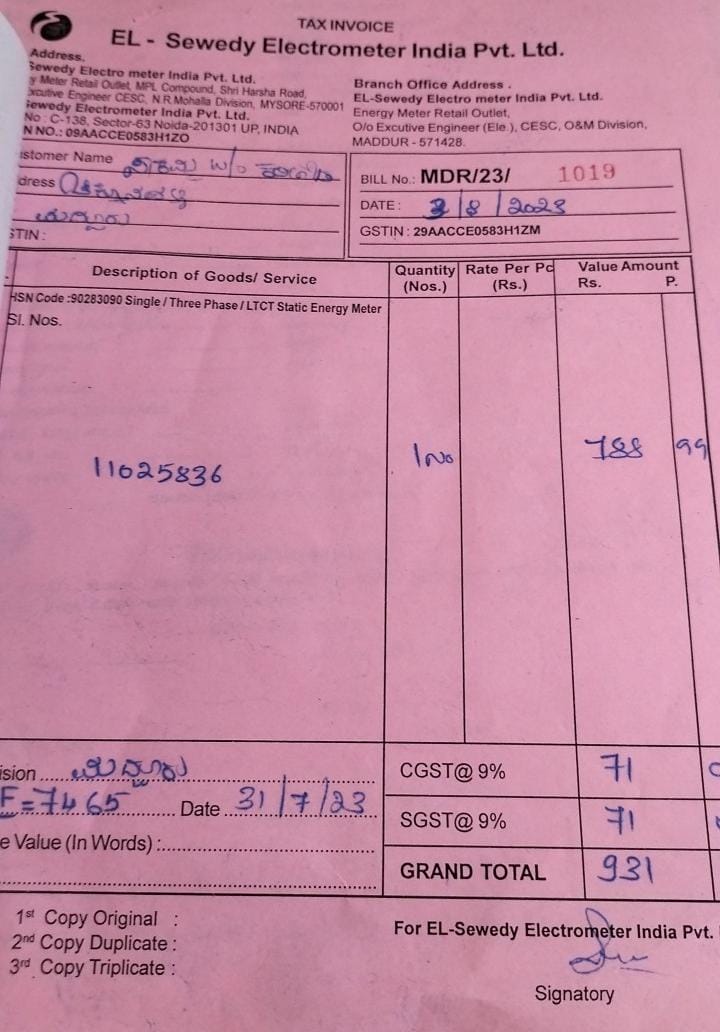 TAX INVOICE
EL - Sewedy Electrometer India Pvt. Ltd.
Address.
Sewedy Electro meter India Pvt. Ltd.
y Meter Retail Outlet, MPL Compound, Shri Harsha Road,
xcutive Engineer CESC, N.R.Mohalla Division, MYSORE-570001
Sewedy Electrometer India Pvt. Ltd.
No : C-138, Sector-63 Noida-201301 UP, INDIA
N NO.: 09AACCE0583H1ZO
Branch Office Address .
EL-Sewedy Electro meter India Pvt. Ltd.
Energy Meter Retail Outlet,
O/o Excutive Engineer (Ele.), CESC, O&M Division,
MADDUR - 571428.
stomer Name W/o
dress
STIN :
BILL No.: MDR/23/ 1019
DATE : 2/8/2023
GSTIN : 29AACCE0583H1ZM
Description of Goods/ Service Quantity (Nos.) Rate Per Pc (Rs.) Value Amount Rs. P.
HSN Code :90283090 Single / Three Phase / LTCT Static Energy Meter
Sl. Nos.
11025836 1 No 788 99
ision ಮದ್ದೂರು
F = 7465 Date 31/7/23
e Value (In Words) :
CGST@ 9% 71
SGST@ 9% 71
GRAND TOTAL 931
1st Copy Original :
2nd Copy Duplicate :
3rd Copy Triplicate :
For EL-Sewedy Electrometer India Pvt.
Signatory